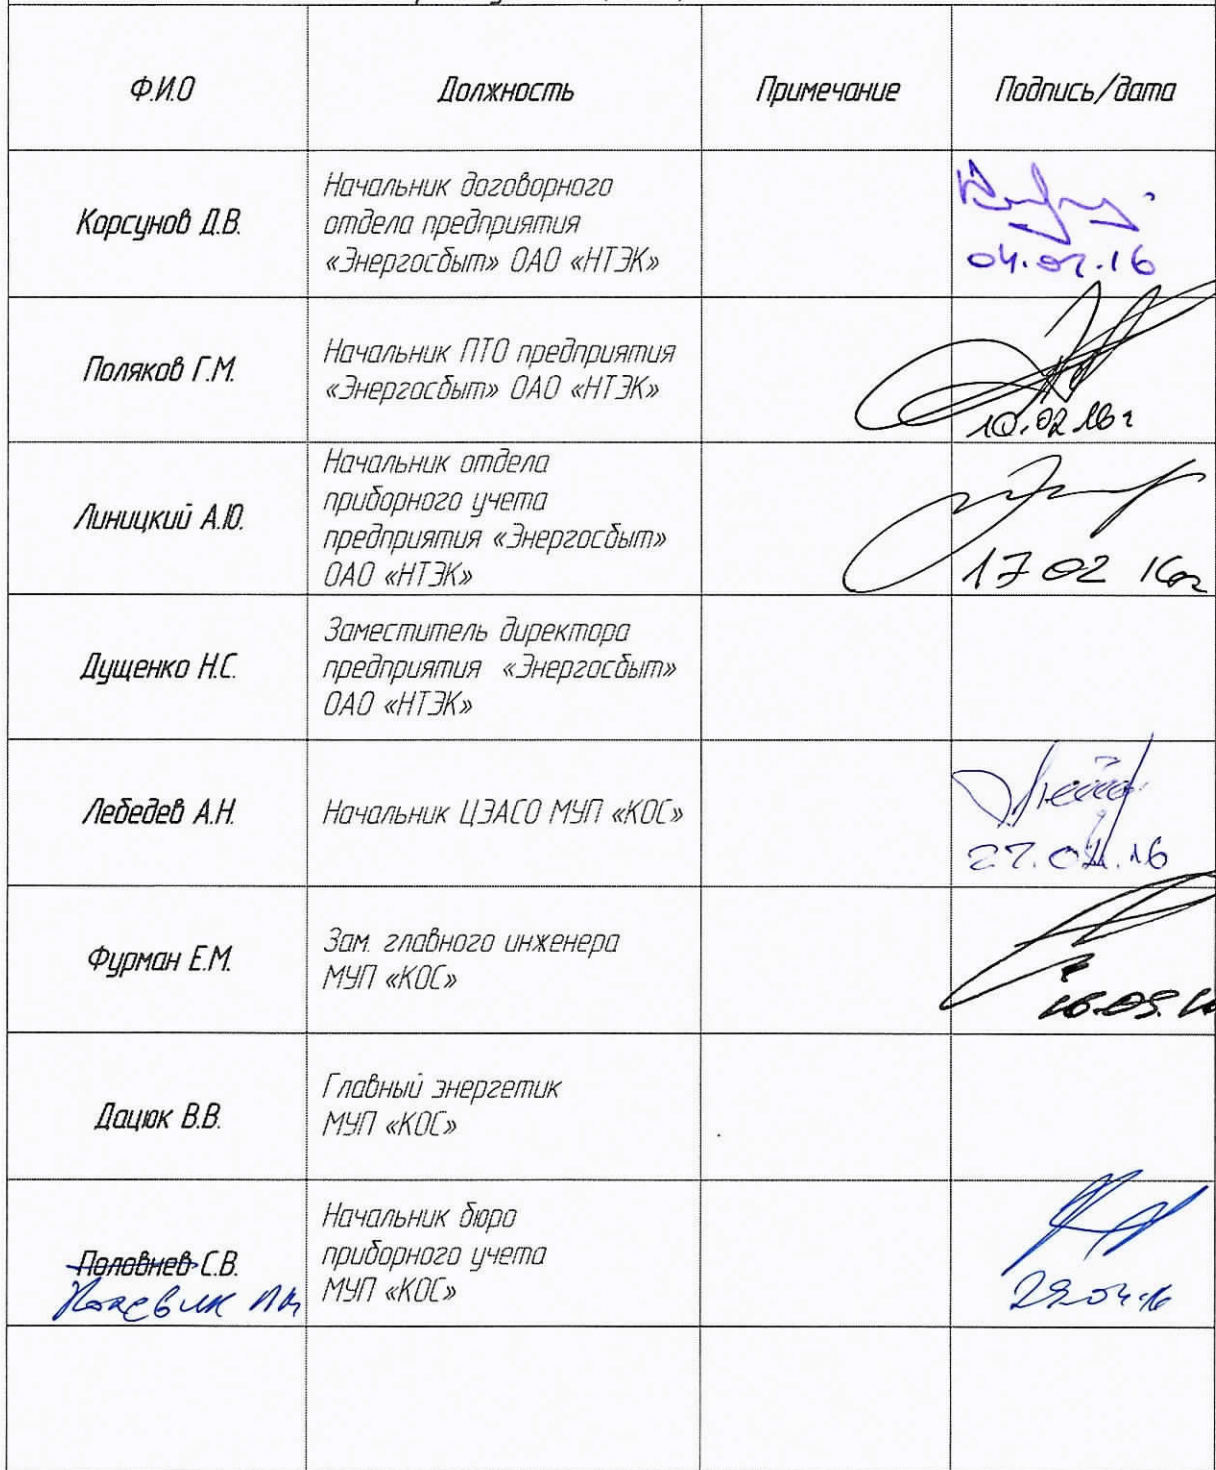 Ф.И.О Должность Примечание Подпись/дата
Корсунов Д.В.
Начальник договорного
отдела предприятия
«Энергосбыт» ОАО «НТЭК»
04.02.16
Поляков Г.М.
Начальник ПТО предприятия
«Энергосбыт» ОАО «НТЭК»
10.02.16г
Линицкий А.Ю.
Начальник отдела
приборного учета
предприятия «Энергосбыт»
ОАО «НТЭК»
17 02 16г
Дущенко Н.С.
Заместитель директора
предприятия «Энергосбыт»
ОАО «НТЭК»
Лебедев А.Н.
Начальник ЦЭАСО МУП «КОС»
Фурман Е.М.
Зам. главного инженера
МУП «КОС»
Дацюк В.В.
Главный энергетик
МУП «КОС»
Половнев С.В.
Начальник бюро
приборного учета
МУП «КОС»
29.04.16